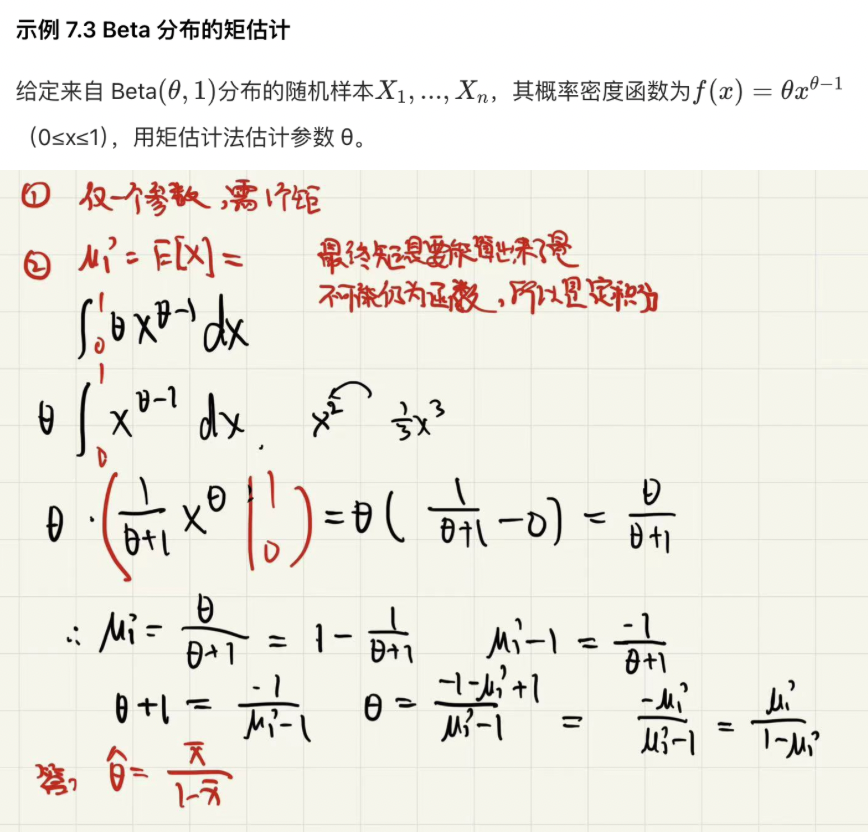 示例 7.3 Beta 分布的矩估计
给定来自 Beta(θ, 1)分布的随机样本X₁, ..., Xₙ，其概率密度函数为f(x) = θx^{θ−1}
（0≤x≤1），用矩估计法估计参数 θ。
① 仅一个参数，需1个矩
② μ₁' = E[X] =
最终矩是要能算出来了是
不可能仍为函数，所以是定积分
∫₀¹ θ x^{θ-1} dx
θ ∫₀¹ x^{θ-1} dx. x² ⅓x³
θ · (1/(θ+1) x^θ |₀¹) = θ( 1/(θ+1) - 0) = θ/(θ+1)
∴ μ₁' = θ/(θ+1) = 1 - 1/(θ+1) μ₁' - 1 = -1/(θ+1)
θ+1 = -1/(μ₁'-1) θ = (-1-μ₁'+1)/(μ₁'-1) = -μ₁'/(μ₁'-1) = μ₁'/(1-μ₁')
答, θ̂ = x̄/(1-x̄)